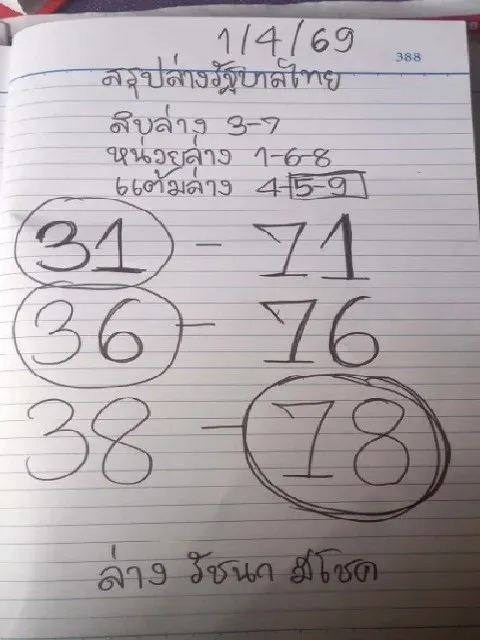 1/4/69
388
สรุปล่างรัฐบาลไทย
สิบล่าง 3-7
หน่วยล่าง 1-6-8
แต้มล่าง 4-5-9
31 - 71
36 - 76
38 - 78
ล่าง รัชนก มีโชค